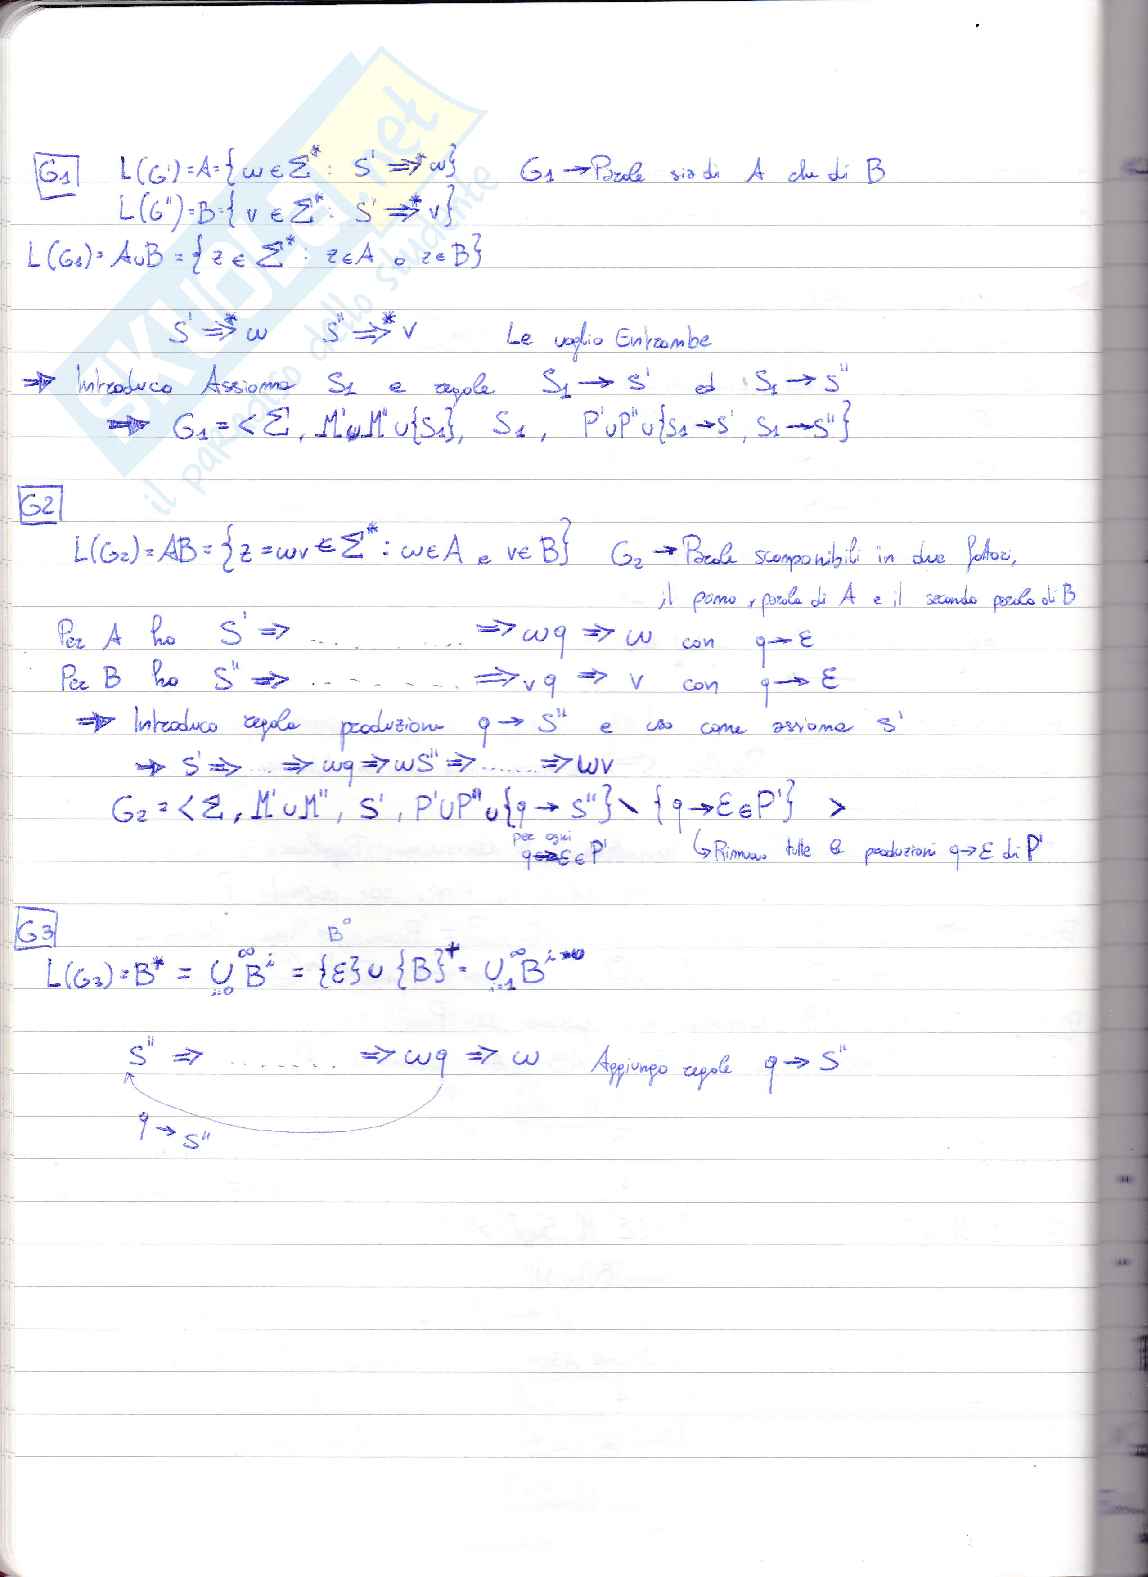 G1 L(G')=A={w∈Σ* : S' ⇒* w} G1 → Parole sia di A che di B
L(G'')=B={v∈Σ* : S' ⇒* v}
L(G1)=A∪B={z∈Σ* : z∈A o z∈B}
S' ⇒* w S'' ⇒* v Le voglio Entrambe
⇒ Introduco Assioma S1 e regole S1 → S' ed S1 → S''
⇒ G1=<Σ, M'∪M''∪{S1}, S1, P'∪P''∪{S1→S', S1→S''}
G2
L(G2)=AB={z=wv∈Σ* : w∈A e v∈B} G2 → Parole scomponibili in due fattori,
il primo parola di A e il secondo parola di B
Per A ho S' ⇒ ............ ⇒ wq ⇒ w con q → ε
Per B ho S'' ⇒ ............ ⇒ vq ⇒ v con q → ε
⇒ Introduco regola produzione q → S'' e uso come assioma S'
⇒ S' ⇒ ... ⇒ wq ⇒ wS'' ⇒ ...... ⇒ wv
G2=<Σ, M'∪M'', S', P'∪P''∪{q → S''} \ {q→ε∈P'} >
per ogni
q→ε∈P' ↳ Rimuovo tutte le produzioni q→ε di P'
G3 B⁰
L(G3)=B* = ∪ i=0 ∞ Bⁱ = {ε}∪{B}⁺ = ∪ i=1 ∞ Bⁱ
S'' ⇒ ........ ⇒ wq ⇒ w Aggiungo regole q → S''
q → S''
SKUOLA.net
il paradiso dello studente